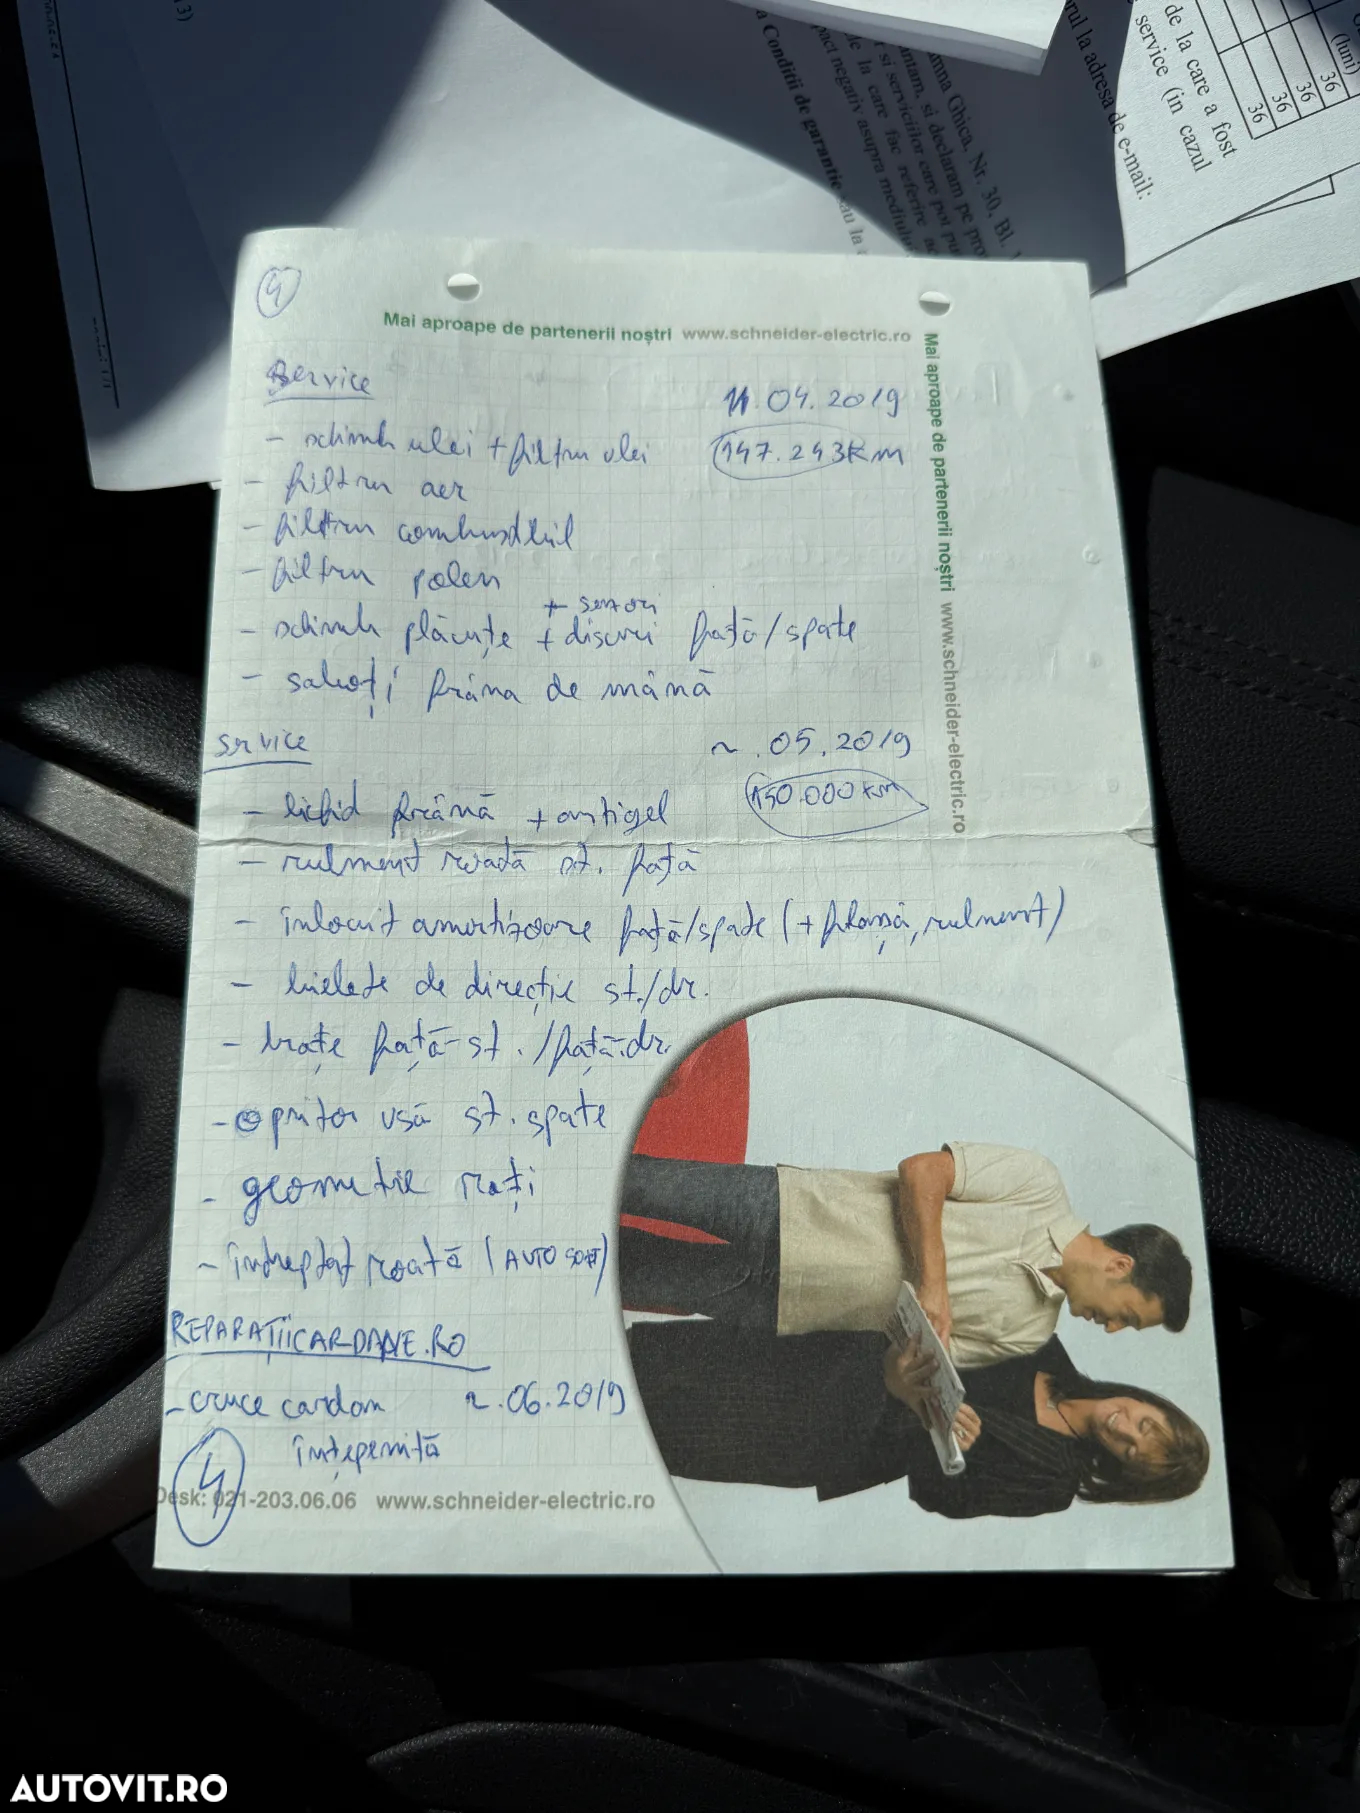 4
Mai aproape de partenerii noștri www.schneider-electric.ro
Mai aproape de partenerii noștri www.schneider-electric.ro
Service
11.04.2019
- schimb ulei + filtru ulei
147.243 Km
- filtru aer
- filtru combustibil
- filtru polen
+ senzori
- schimb plăcuțe + discuri față/spate
- saboți frâna de mână
Service
~.05.2019
- lichid frână + antigel
150.000 km
- rulment roată st. față
- înlocuit amortizoare față/spate (+ flanșă, rulment)
- bielete de direcție st./dr.
- brațe față-st./față.dr.
- opritor ușă st. spate
- geometrie roți
- îndreptat roată (AUTO SOFT)
REPARAȚIICARDANE.RO
- cruce cardan ~.06.2019
înțepenită
4
Desk: 021-203.06.06 www.schneider-electric.ro
a Conditii de garantie sau la
pact negativ asupra mediului
le la care fac referire
r si serviciilor care pot
antam, si declaram pe
mna Ghica, Nr. 30, Bl.
rul la adresa de e-mail:
service (in cazul
de la care a fost
(luni)
36
36
36
36
AUTOVIT.RO